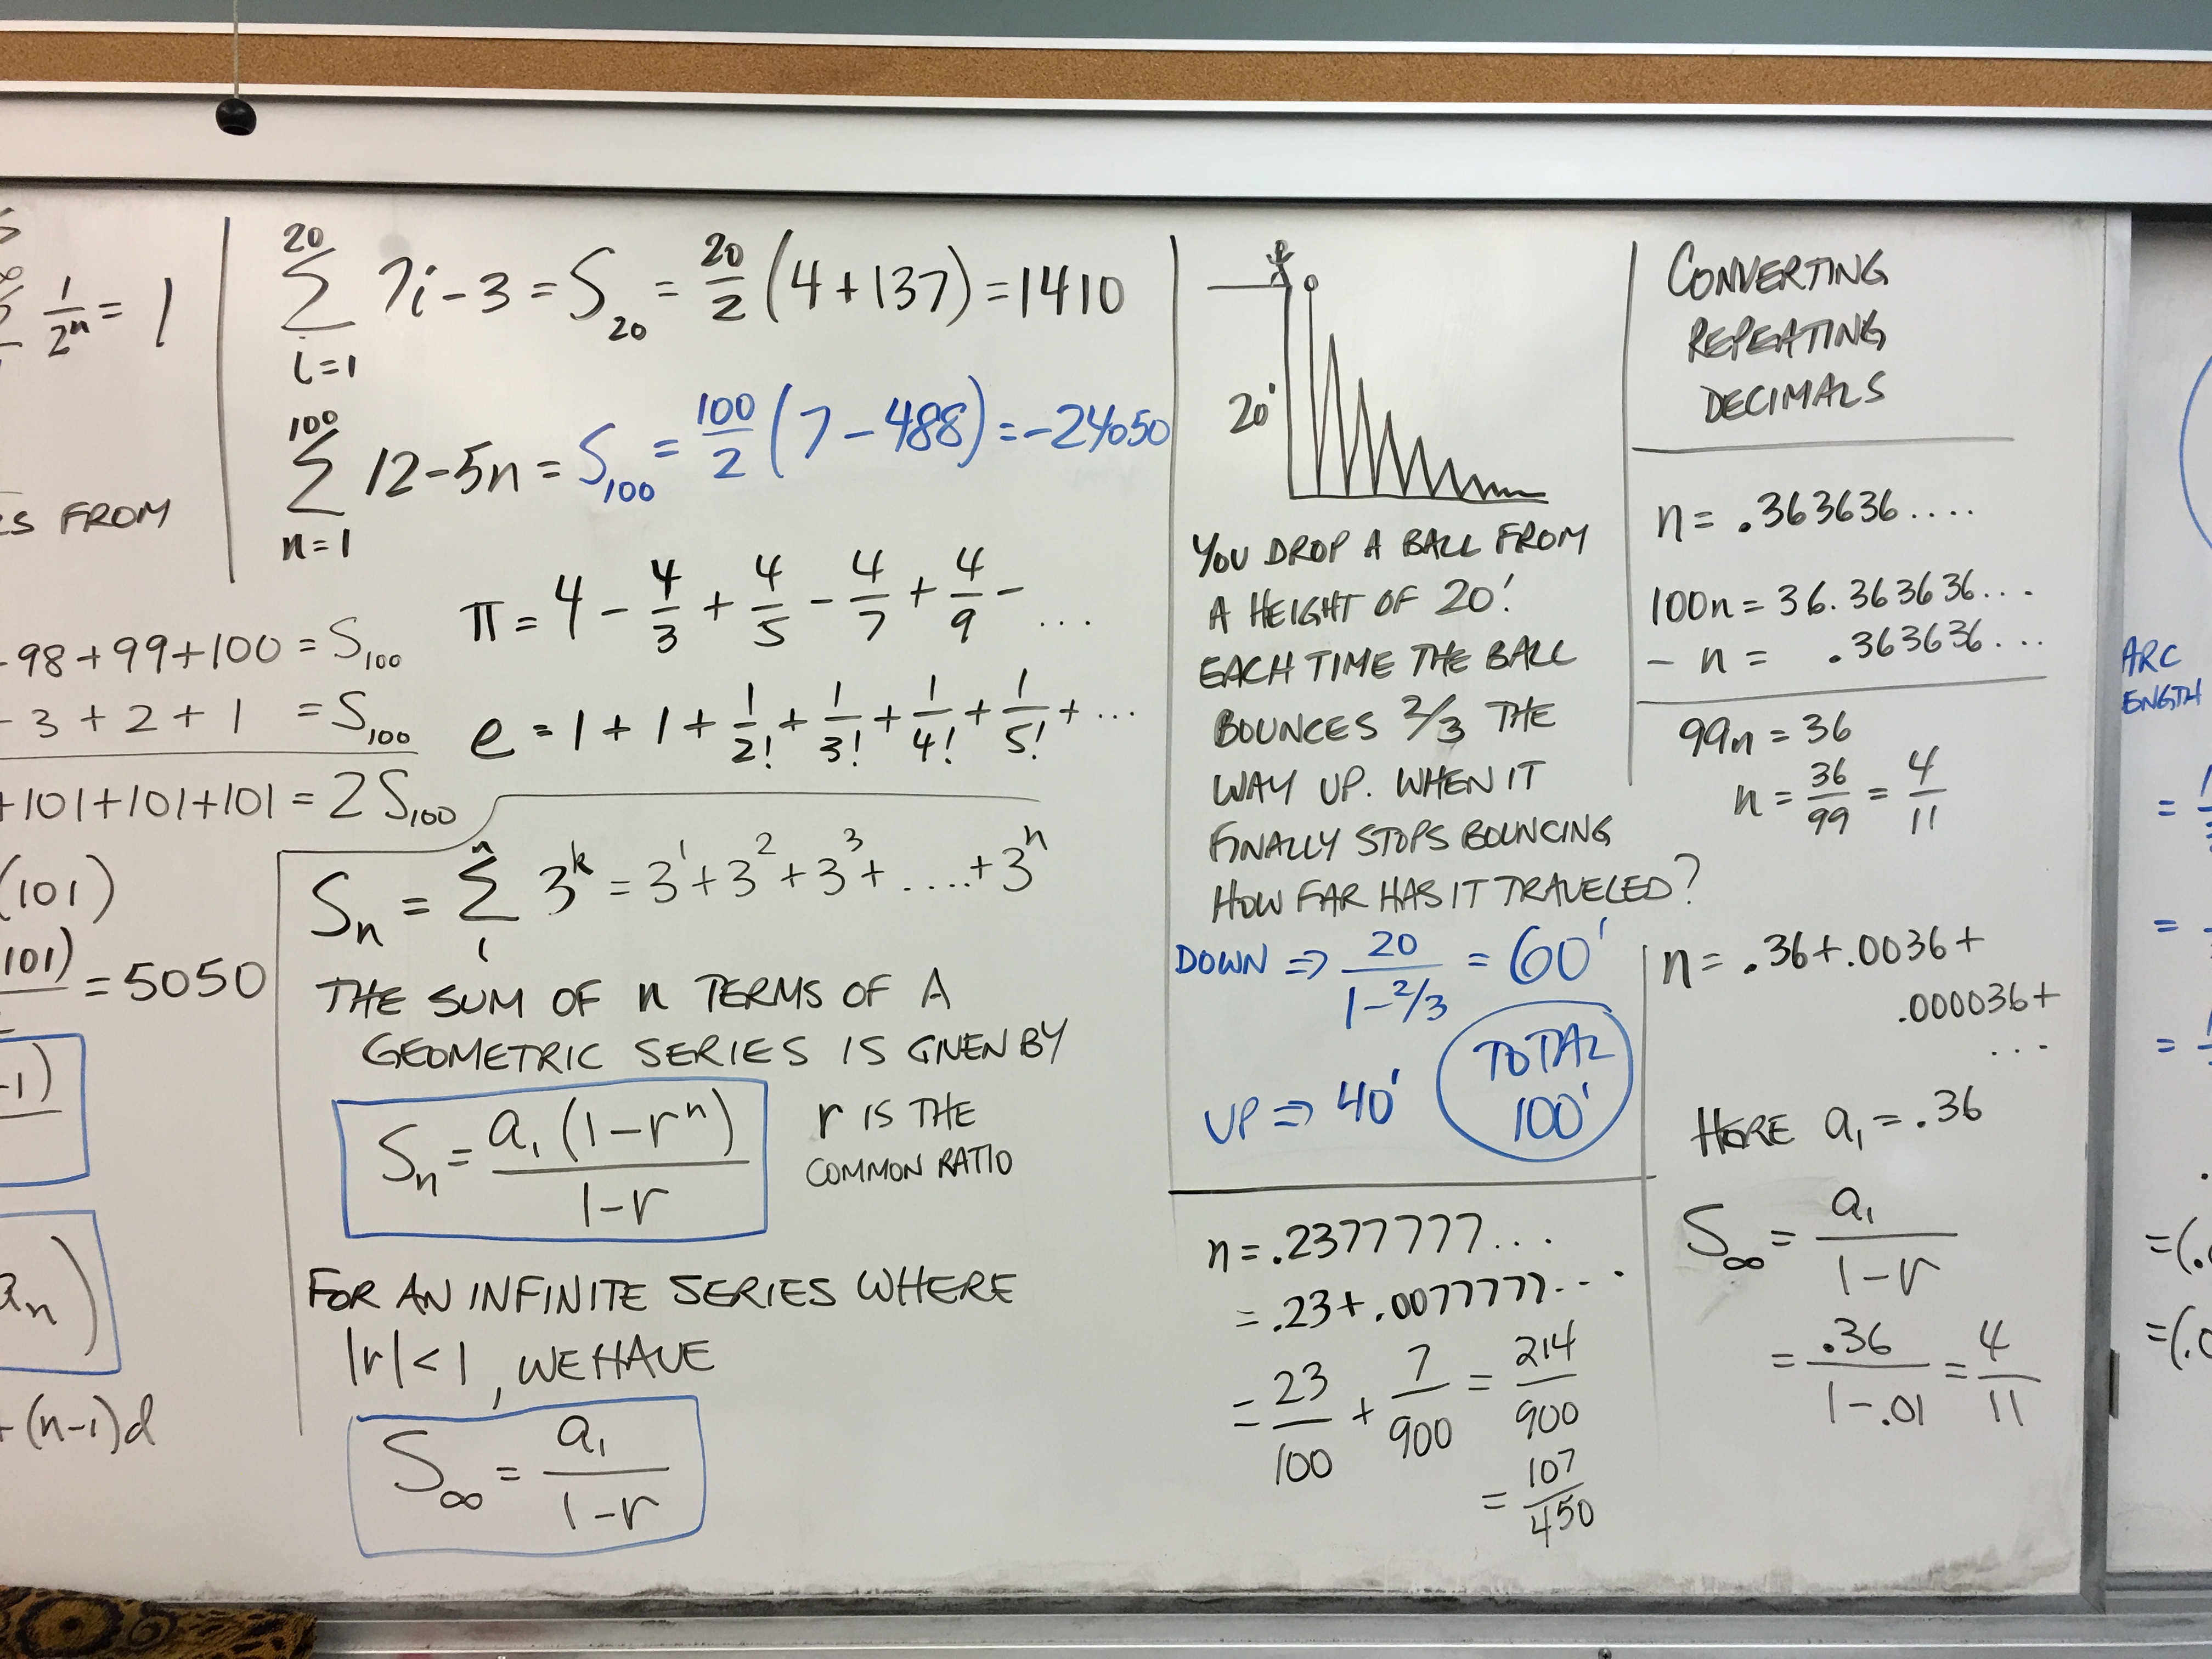 1/2ⁿ = 1
ES FROM
98 + 99 + 100 = S₁₀₀
3 + 2 + 1 = S₁₀₀
+101+101+101 = 2S₁₀₀
(101)
101) = 5050
-1)
aₙ)
+ (n-1)d
20
∑ 7i - 3 = S₂₀ = 20/2 (4 + 137) = 1410
i=1
100
∑ 12 - 5n = S₁₀₀ = 100/2 (7 - 488) = -24050
n=1
π = 4 - 4/3 + 4/5 - 4/7 + 4/9 - ...
e = 1 + 1 + 1/2! + 1/3! + 1/4! + 1/5! + ...
n
Sₙ = ∑ 3ᵏ = 3¹ + 3² + 3³ + .... + 3ⁿ
1
THE SUM OF n TERMS OF A
GEOMETRIC SERIES IS GIVEN BY
Sₙ = a₁(1-rⁿ)/1-r
r IS THE
COMMON RATIO
FOR AN INFINITE SERIES WHERE
|r| < 1, WE HAVE
S∞ = a₁/1-r
20'
YOU DROP A BALL FROM
A HEIGHT OF 20'.
EACH TIME THE BALL
BOUNCES 2/3 THE
WAY UP. WHEN IT
FINALLY STOPS BOUNCING
HOW FAR HAS IT TRAVELED?
DOWN ⇒ 20/1-2/3 = 60'
UP ⇒ 40'
TOTAL
100'
n = .2377777...
= .23 + .0077777...
= 23/100 + 7/900 = 214/900
= 107/450
CONVERTING
REPEATING
DECIMALS
n = .363636....
100n = 36.363636...
- n = .363636...
99n = 36
n = 36/99 = 4/11
n = .36 + .0036 +
.000036 +
...
HERE a₁ = .36
S∞ = a₁/1-r
= .36/1-.01 = 4/11
ARC
ENGTH
=
=
=
=(.
=(.0